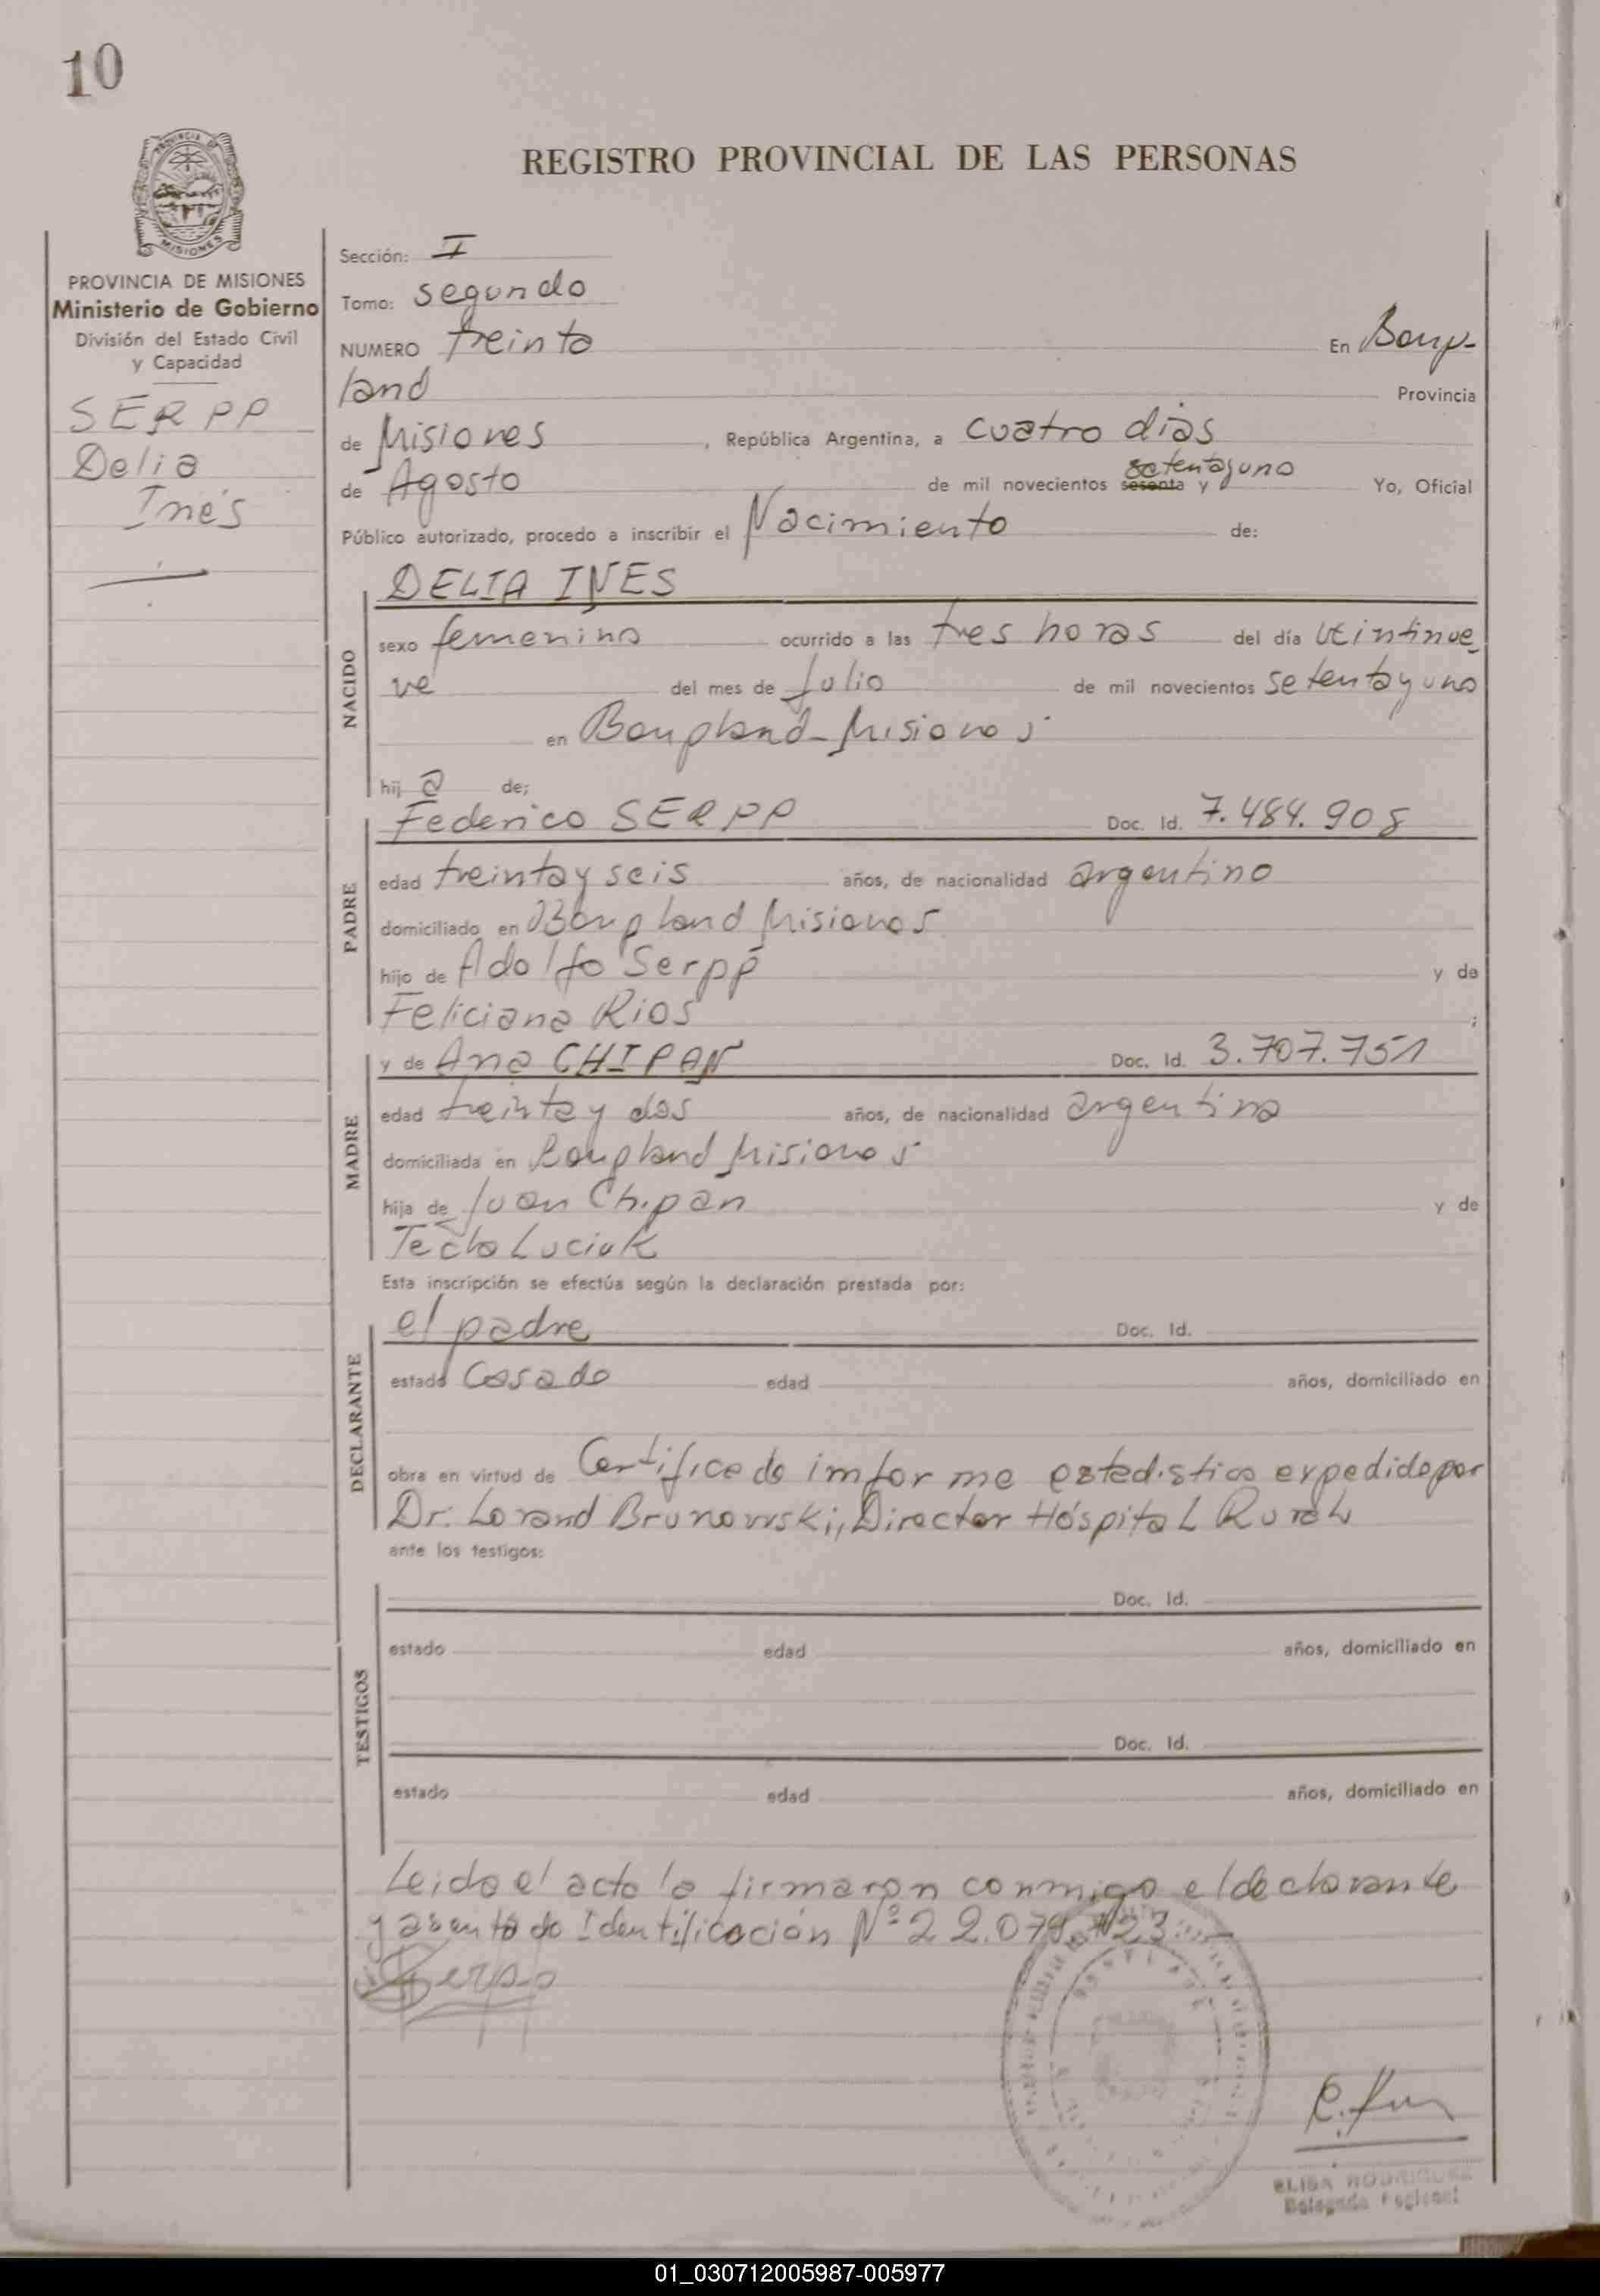 10
REGISTRO PROVINCIAL DE LAS PERSONAS
PROVINCIA DE MISIONES
Ministerio de Gobierno
División del Estado Civil
y Capacidad
SERPP
Delia
Inés
Sección: I
Tomo: segundo
NUMERO treinta En Bonp-
land Provincia
de Misiones, República Argentina, a cuatro dias
de Agosto de mil novecientos sesenta y setenta y uno Yo, Oficial
Público autorizado, procedo a inscribir el Nacimiento de:
NACIDO
DELIA INES
sexo femenino ocurrido a las tres horas del día veintinue
ve del mes de Julio de mil novecientos setenta y uno
en Bonpland-Misiones
hij a de;
PADRE
Federico SERPP Doc. Id. 7.484.908
edad treinta y seis años, de nacionalidad argentino
domiciliado en Bonpland Misiones
hijo de Adolfo Serpp y de
Feliciana Rios ;
MADRE
y de Ana CHIPAN Doc. Id. 3.707.751
edad treinta y dos años, de nacionalidad argentina
domiciliada en Bonpland Misiones
hija de Juan Chipan y de
Tecla Luciuk
Esta inscripción se efectúa según la declaración prestada por:
DECLARANTE
el padre Doc. Id.
estado Casado edad años, domiciliado en
obra en virtud de Certificado imforme estadistico expedido por
Dr. Lorand Brunowski, Director Hóspital Rural
ante los testigos:
TESTIGOS
Doc. Id.
estado edad años, domiciliado en
Doc. Id.
estado edad años, domiciliado en
Leida el acta la firmaron conmigo el declarante
y asentado Identificación Nº 22.079.123.-
Serpp
ELISA RODRIGUEZ
Delegada Regional
01_030712005987-005977